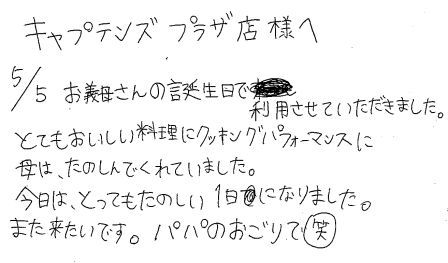 キャプテンズ プラザ店 様へ
5/5 お義母さんの誕生日で
利用させていただきました。
とてもおいしい料理にクッキングパフォーマンスに
母は、たのしんでくれていました。
今日は、とってもたのしい 1日になりました。
また来たいです。パパのおごりで笑